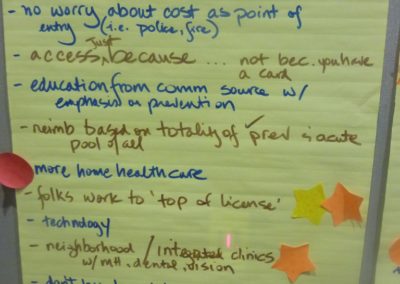 - no worry about cost as point of
entry (i.e. police, fire)
- access, just because ... not bec. you have
a card
- education from comm source w/
emphasis on prevention
- reimb based on totality of ✓ prev & acute
pool of all
more home health care
- folks work to 'top of license'
- technology
- neighborhood / integrated clinics
w/ MH, dental, vision